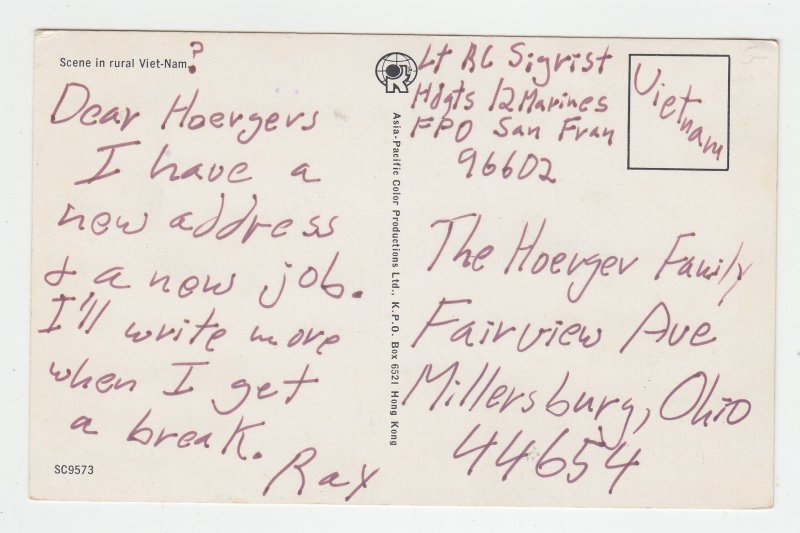 Scene in rural Viet-Nam.
?
Dear Hoergers
I have a
new address
& a new job.
I'll write more
when I get
a break.
Rax
SC9573
Asia-Pacific Color Productions Ltd., K.P.O. Box 6521 Hong Kong
Lt RC Sigrist
Hdqts 12 Marines
FPO San Fran
96602
Vietnam
The Hoerger Family
Fairview Ave
Millersburg, Ohio
44654